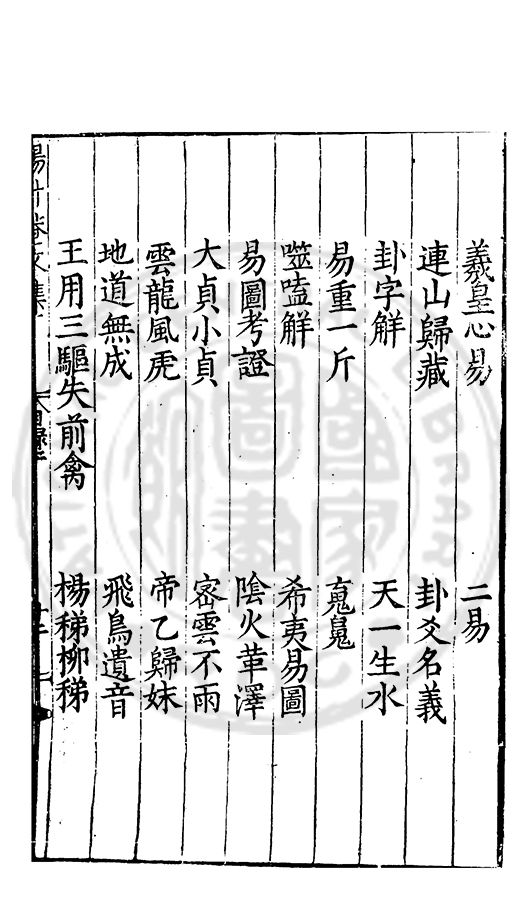 羲皇心易 二易
連山歸藏 卦爻名義
卦字解 天一生水
易重一斤
噬嗑解 希夷易圖
易圖考證 陰火革澤
大貞小貞 密雲不雨
雲龍風虎 帝乙歸妹
地道無成 飛鳥遺音
王用三驅失前禽 楊稊柳稊